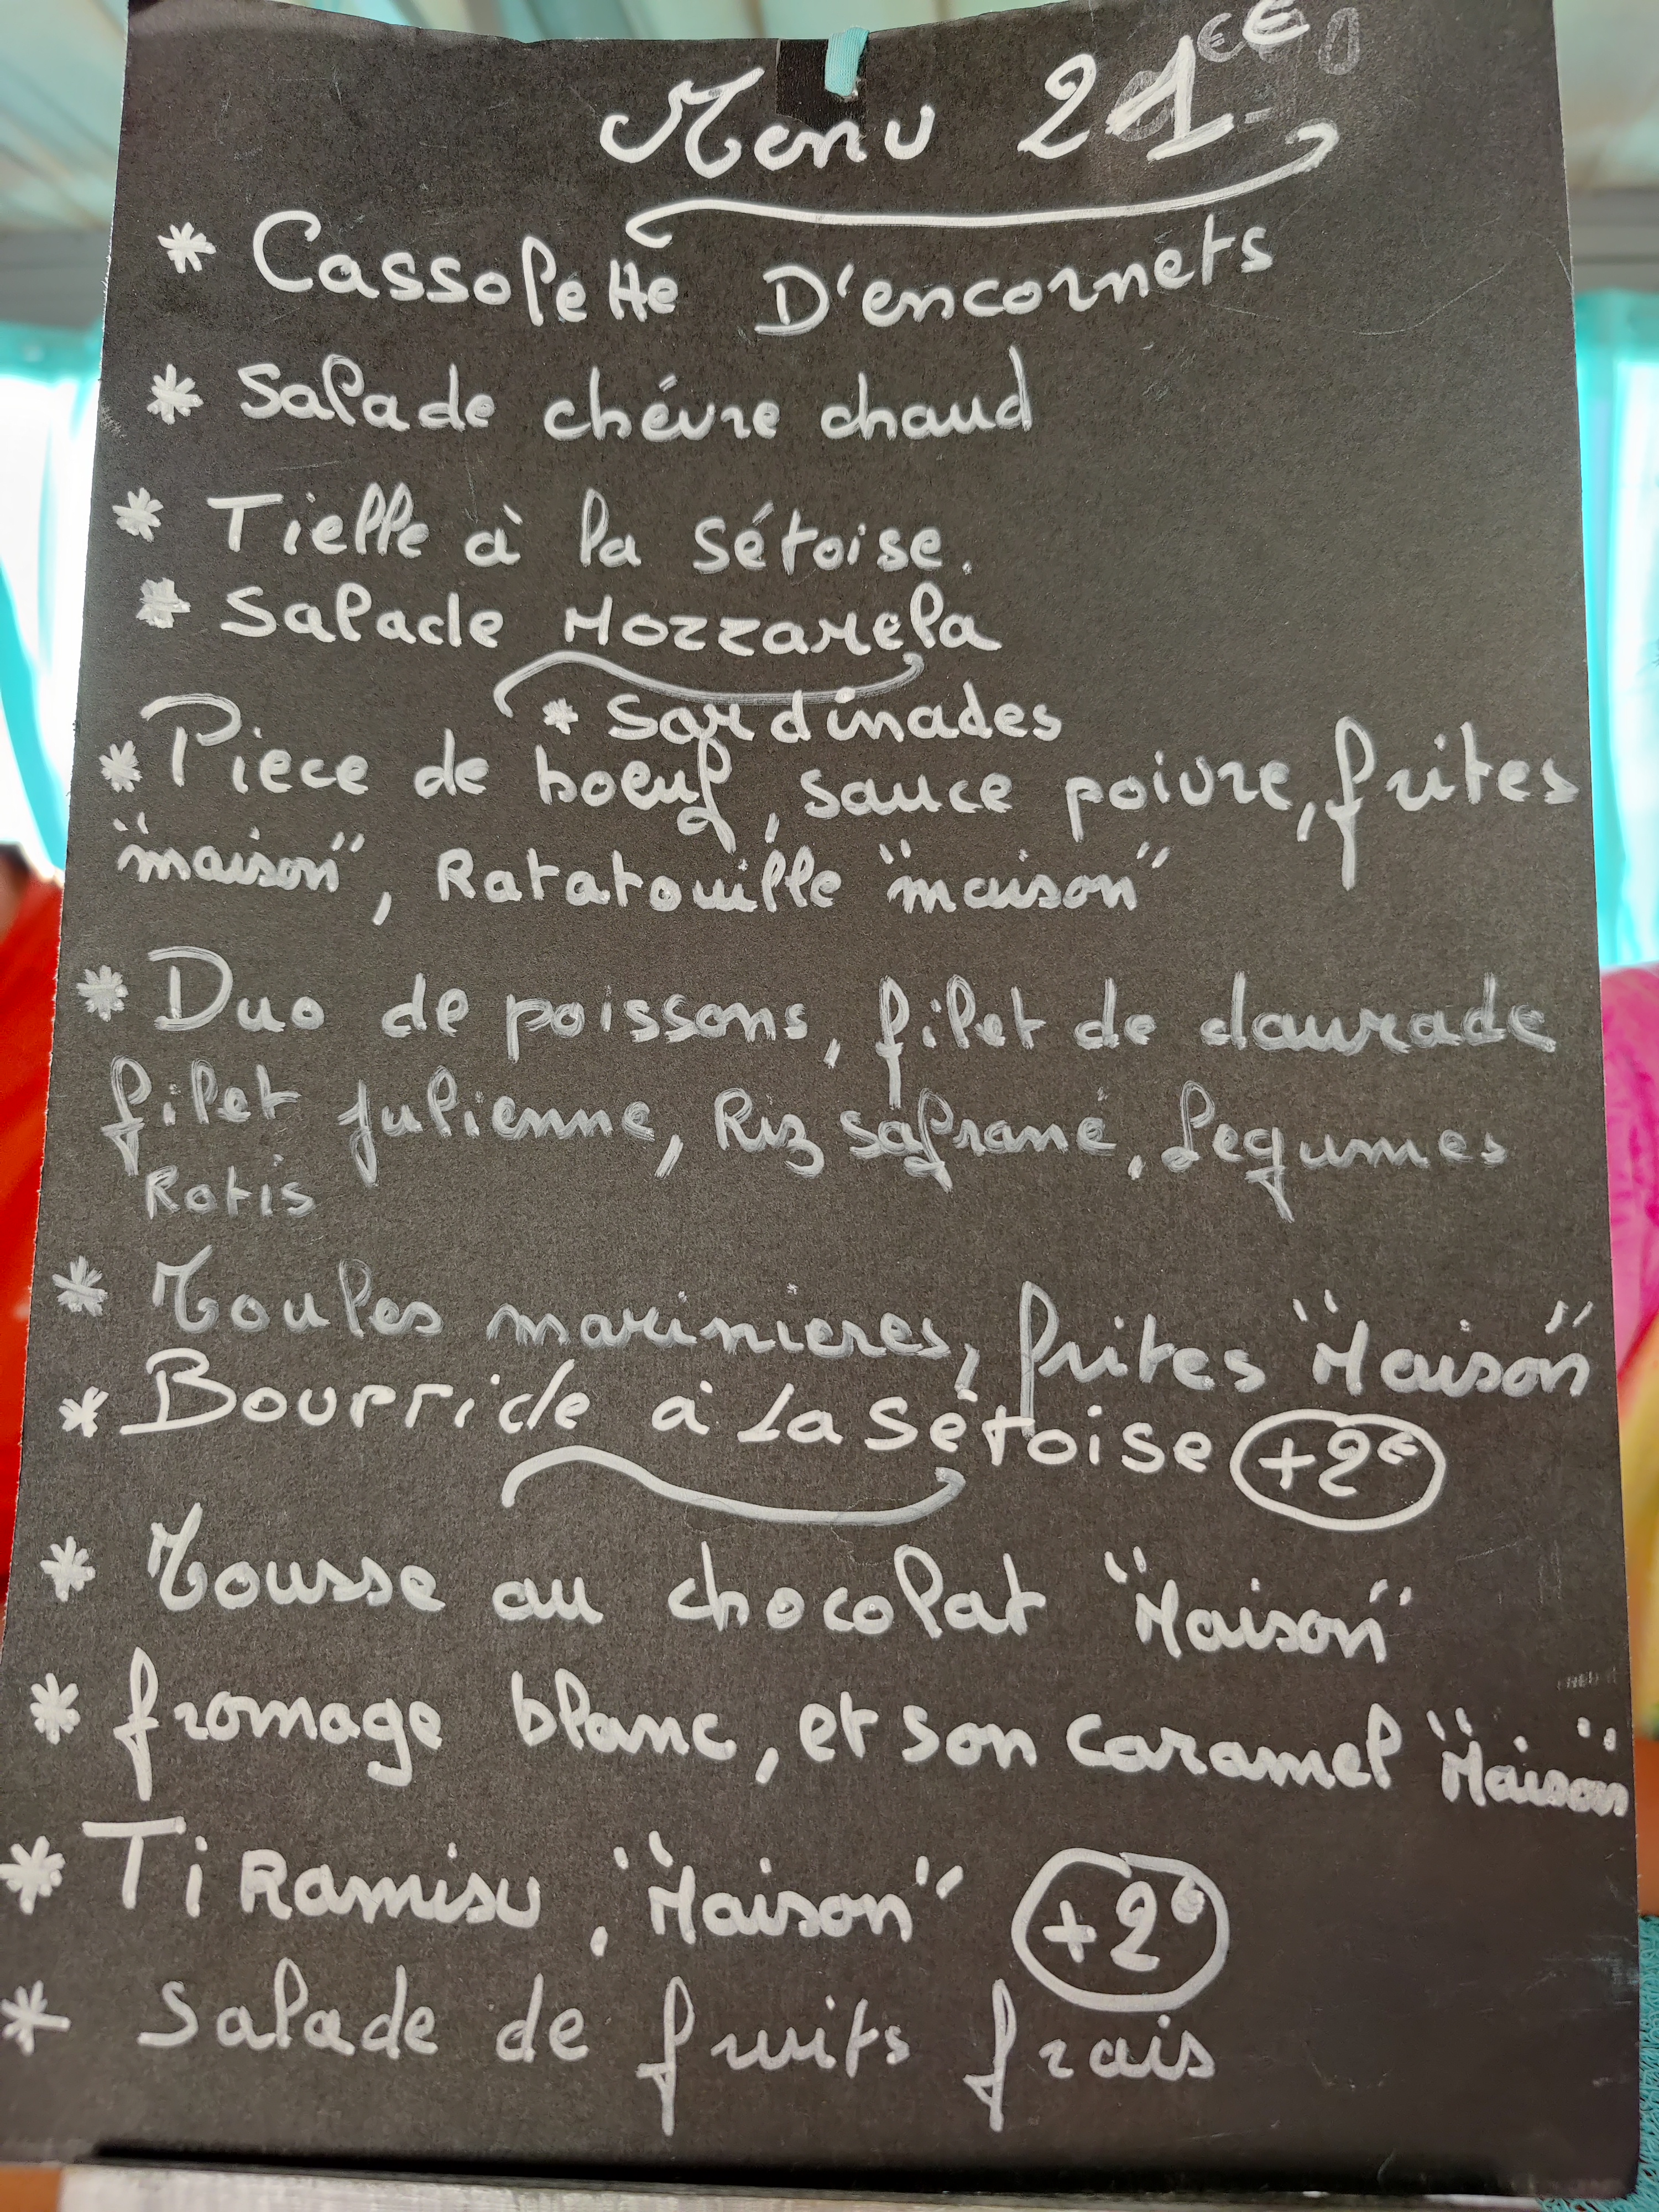 Menu 21€
* Cassolette D'encornets
* Salade chévre chaud
* Tielle à la Sétoise.
* Salade Mozzarela
* Sardinades
* Piece de boeuf, sauce poivre, frites
"maison", Ratatouille "maison"
* Duo de poissons, filet de daurade
filet julienne, Riz safrané, legumes
Rotis
* Moules marinieres, frites "Maison"
* Bourride à la Sétoise +2€
* Mousse au chocolat "Maison"
* fromage blanc, et son caramel "Maison"
* Tiramisu, "Maison" +2€
* Salade de fruits frais